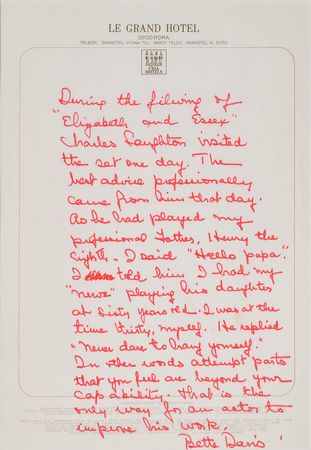 LE GRAND HOTEL
00100 ROMA
CIGA
HOTELS
During the filming of
"Elizabeth and Essex"
Charles Laughton visited
the set one day. The
best advice professionally
came from him that day.
As he had played my
professional Father, Henry the
eighth. I said "Hello papa."
I told him I had my
"nerve" playing his daughter
at sixty years old. I was at the
time thirty, myself. He replied
"Never dare to hang yourself."
In other words attempt parts
that you feel are beyond your
capability. That is the
only way for an actor to
improve his work.
Bette Davis